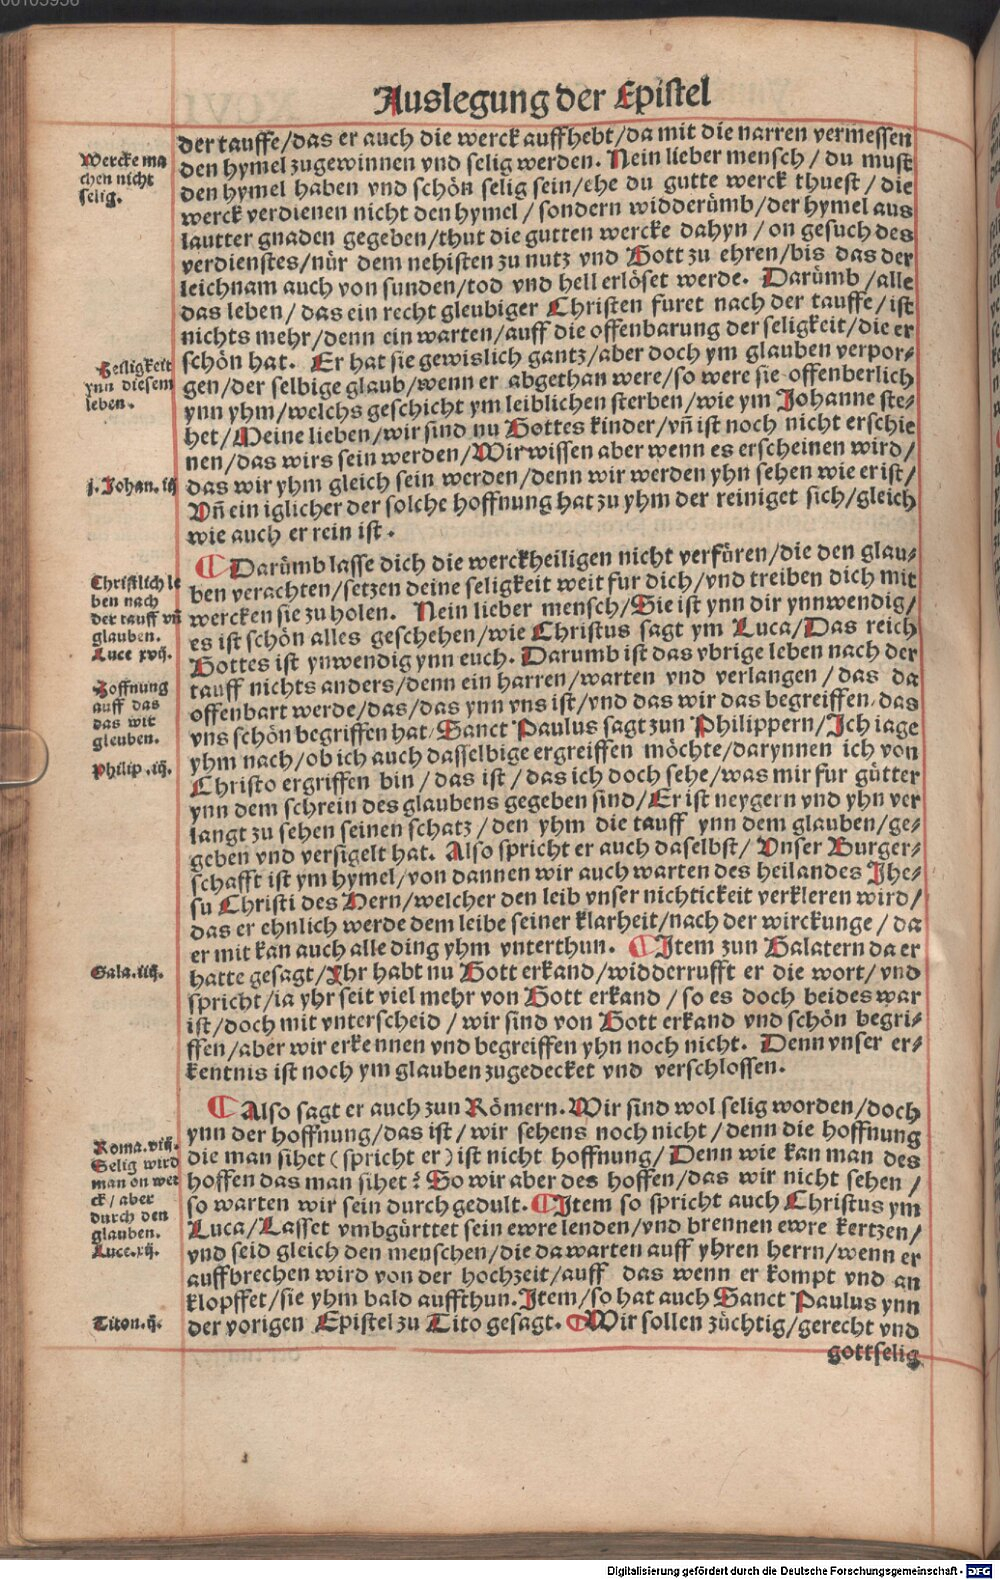 00105956
Auslegung der Epistel
der tauffe/das er auch die werck auffhebt/da mit die narren vermessen
den hymel zugewinnen vnd selig werden. Nein lieber mensch/ du must
den hymel haben vnd schön selig sein/ehe du gutte werck thuest / die
werck verdienen nicht den hymel / sondern widderümb/der hymel aus
lautter gnaden gegeben/thut die gutten wercke dahyn / on gesuch des
verdienstes/nür dem nehisten zu nutz vnd Gott zu ehren/bis das der
leichnam auch von sunden/tod vnd hell erlöset werde. Darümb /alle
das leben/ das ein recht gleubiger Christen furet nach der tauffe/ ist
nichts mehr/denn ein warten/auff die offenbarung der seligkeit/die er
schön hat. Er hat sie gewislich gantz/aber doch ym glauben verpor-
gen/der selbige glaub/wenn er abgethan were/so were sie offenberlich
ynn yhm/welchs geschicht ym leiblichen sterben/wie ym Johanne ste-
het/Meine lieben/wir sind nu Gottes kinder/vñ ist noch nicht erschie
nen/das wirs sein werden/Wir wissen aber wenn es erscheinen wird/
das wir yhm gleich sein werden/denn wir werden yhn sehen wie er ist/
Vñ ein iglicher der solche hoffnung hat zu yhm der reiniget sich/gleich
wie auch er rein ist.
Wercke ma
chen nicht
selig.
Seligkeit
ynn diesem
leben.
j. Johan. iij
¶ Darümb lasse dich die werckheiligen nicht verfüren/die den glau-
ben verachten/setzen deine seligkeit weit fur dich/vnd treiben dich mit
wercken sie zu holen. Nein lieber mensch/Sie ist ynn dir ynnwendig/
es ist schön alles geschehen/wie Christus sagt ym Luca/Das reich
Gottes ist ynwendig ynn euch. Darumb ist das vbrige leben nach der
tauff nichts anders/denn ein harren/warten vnd verlangen/das da
offenbart werde/das/das ynn vns ist/vnd das wir das begreiffen/das
vns schön begriffen hat/Sanct Paulus sagt zun Philippern/Ich iage
yhm nach/ob ich auch dasselbige ergreiffen möchte/darynnen ich von
Christo ergriffen bin/das ist/das ich doch sehe/was mir fur gütter
ynn dem schrein des glaubens gegeben sind/Er ist neygern vnd yhn ver
langt zu sehen seinen schatz/den yhm die tauff ynn dem glauben/ge-
geben vnd versigelt hat. Also spricht er auch daselbst/ Vnser Burger-
schafft ist ym hymel/von dannen wir auch warten des heilandes Jhe-
su Christi des Hern/welcher den leib vnser nichtickeit verkleren wird/
das er ehnlich werde dem leibe seiner klarheit/nach der wirckunge/ da
er mit kan auch alle ding yhm vnterthun. ¶ Item zun Galatern da er
hatte gesagt/Jhr habt nu Gott erkand/widderrufft er die wort/ vnd
spricht/ia yhr seit viel mehr von Gott erkand / so es doch beides war
ist/doch mit vnterscheid / wir sind von Gott erkand vnd schön begri-
ffen/aber wir erkennen vnd begreiffen yhn noch nicht. Denn vnser er-
kentnis ist noch ym glauben zugedecket vnd verschlossen.
Christlich le
ben nach
der tauff vñ
glauben.
Luce xvij.
Hoffnung
auff das
das wir
gleuben.
Philip .iij.
Gala.iiij.
¶ Also sagt er auch zun Römern. Wir sind wol selig worden/doch
ynn der hoffnung/das ist/ wir sehens noch nicht / denn die hoffnung
die man sihet (spricht er) ist nicht hoffnung/ Denn wie kan man des
hoffen das man sihet? So wir aber des hoffen/das wir nicht sehen /
so warten wir sein durch gedult. ¶ Item so spricht auch Christus ym
Luca/Lasset vmbgürttet sein ewre lenden/vnd brennen ewre kertzen/
vnd seid gleich den menschen/die da warten auff yhren herrn/wenn er
auffbrechen wird von der hochzeit/auff das wenn er kompt vnd an
klopffet/sie yhm bald auffthun. Item/so hat auch Sanct Paulus ynn
der vorigen Epistel zu Tito gesagt. ¶ Wir sollen züchtig/gerecht vnd
gottselig
Roma. viij.
Selig wird
man on wer
ck/ aber
durch den
glauben.
Luce.xij.
Titon.ij.
Digitalisierung gefördert durch die Deutsche Forschungsgemeinschaft - DFG